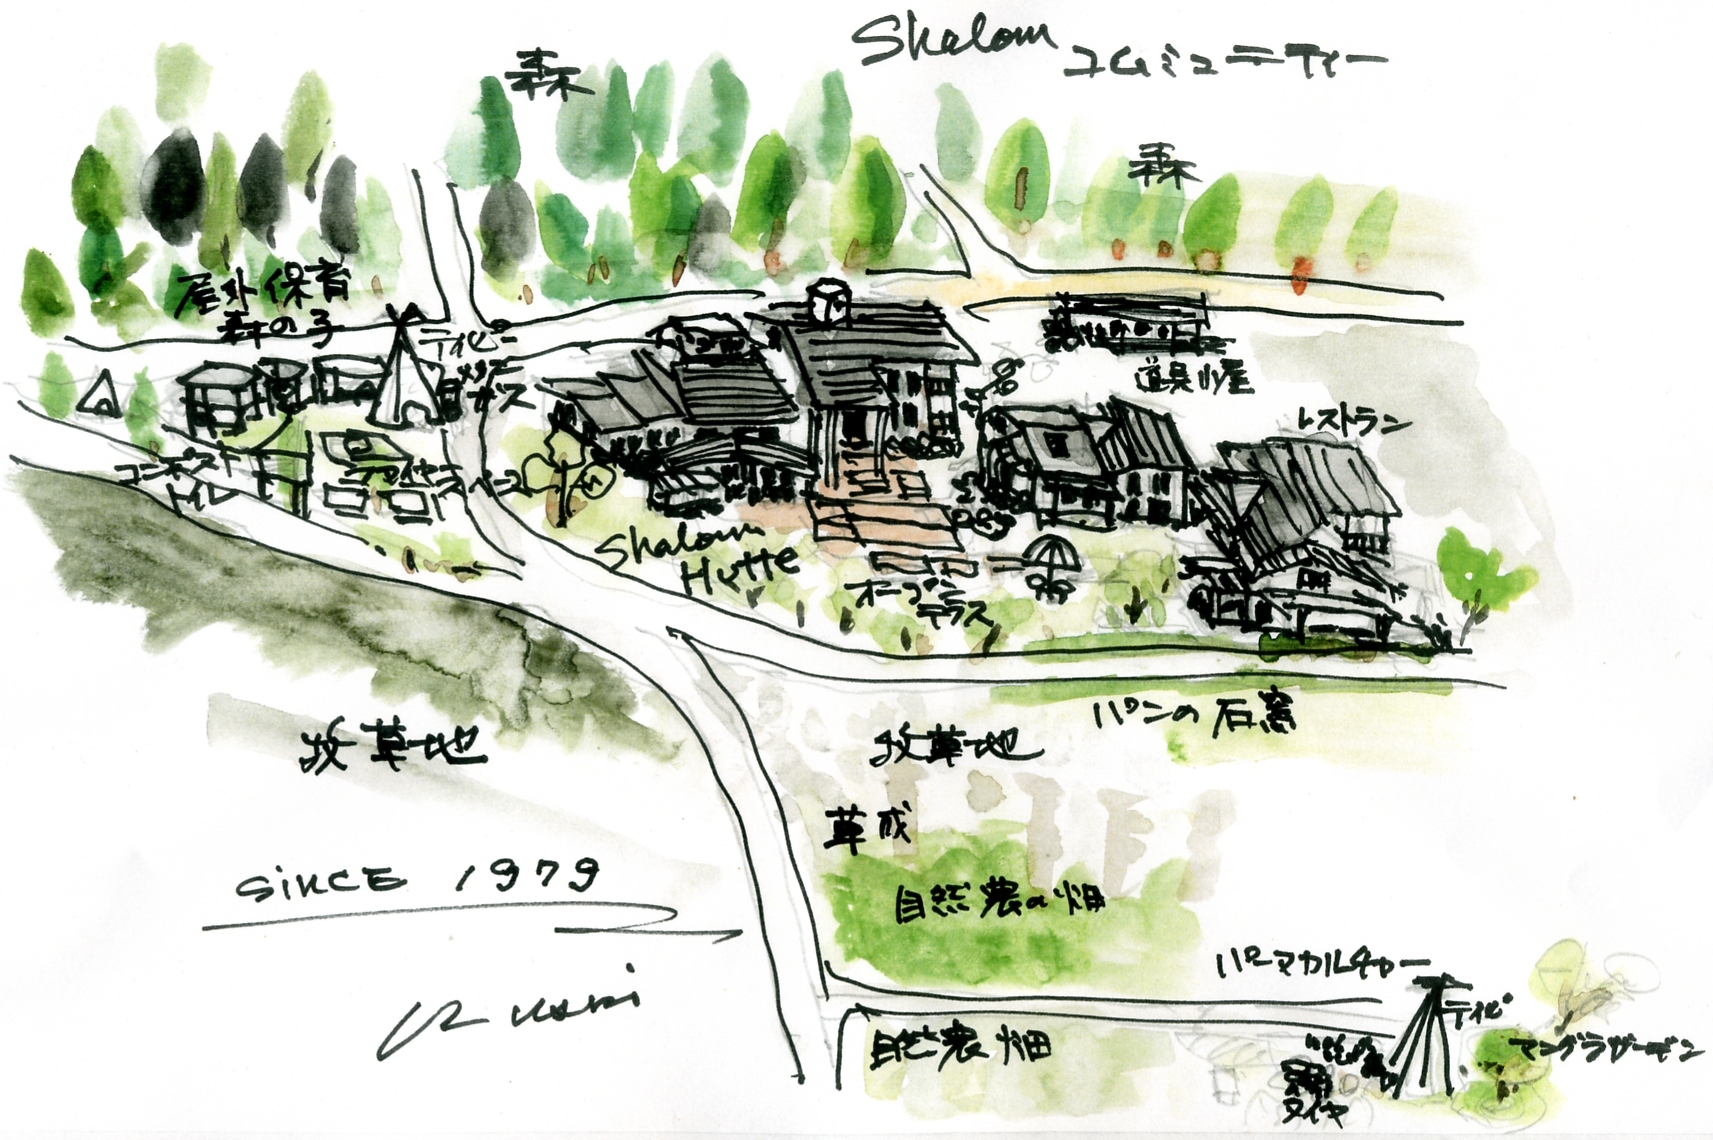 Shalom コムミュニティー
森
森
屋外保育
森の子
ティピー
道具小屋
レストラン
コンポスト
トイレ
Shalom
Hutte
オープン
テラス
パンの石窯
牧草地
牧草地
草成
自然農の畑
SINCE 1979
パーマカルチャー
ティピ
自然農畑
マンダラガーデン
タイヤ